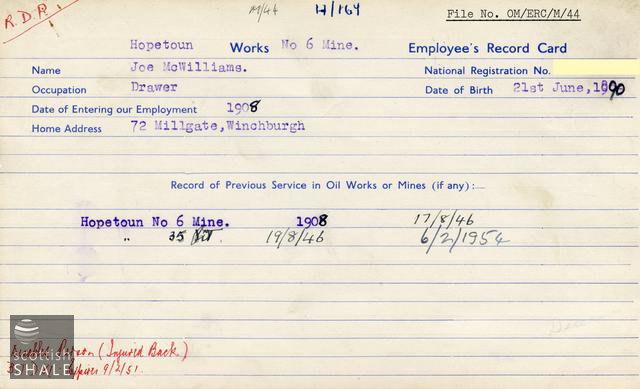 R.D.P. M/44 H/164 File No. OM/ERC/M/44
Hopetoun Works No 6 Mine. Employee's Record Card
Name Joe McWilliams. National Registration No.
Occupation Drawer Date of Birth 21st June, 1890
Date of Entering our Employment 1908
Home Address 72 Millgate, Winchburgh
Record of Previous Service in Oil Works or Mines (if any):—
Hopetoun No 6 Mine. 1908 17/8/46
" 35 19/8/46 6/2/1954
Person (Injured Back.)
Expires 9/2/51.
scottish
SHALE